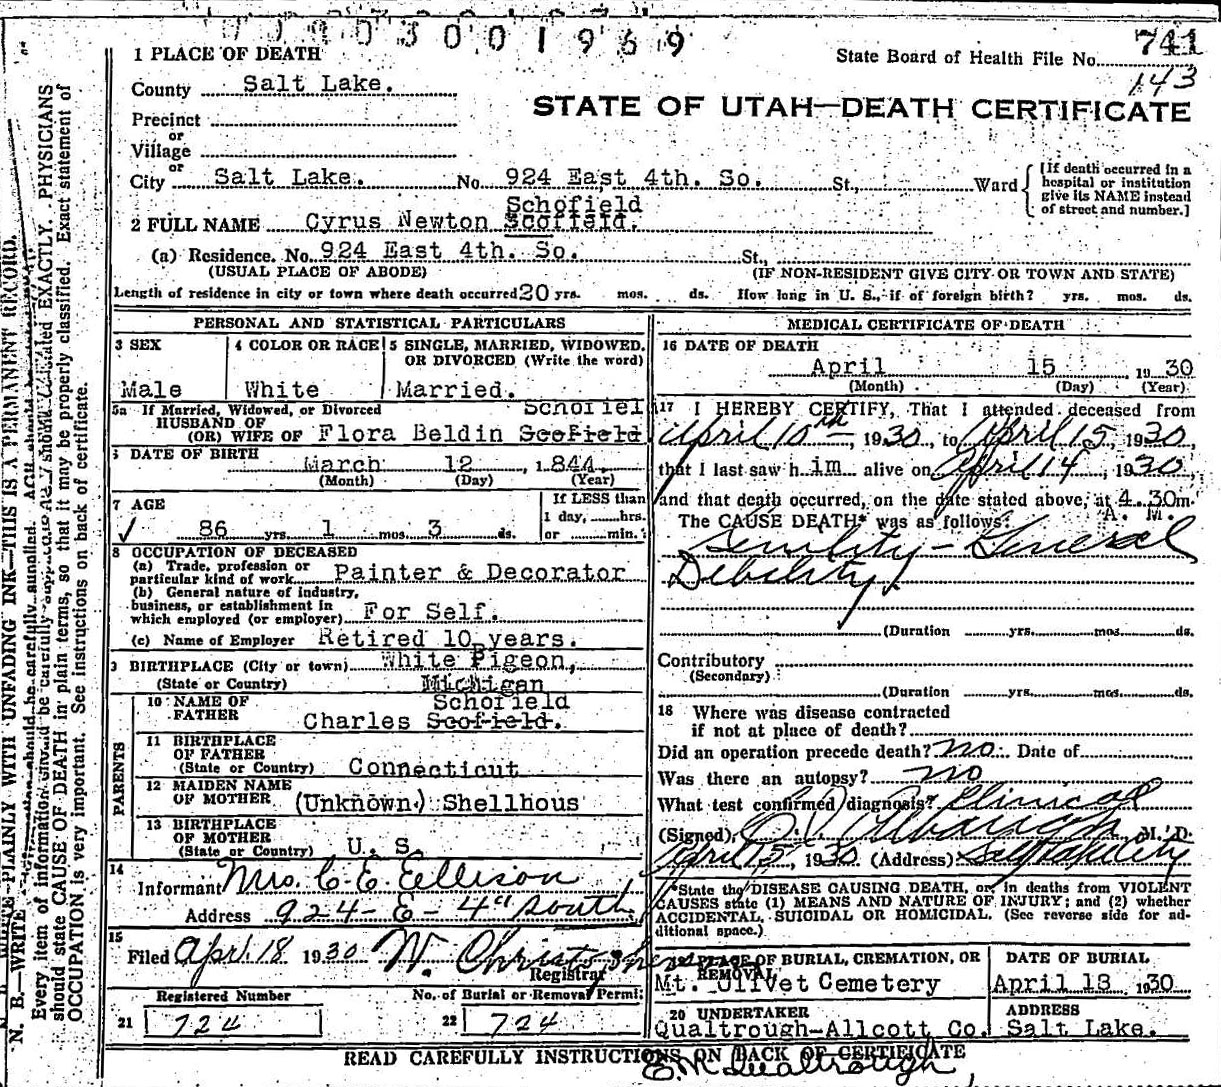 003001969
741
State Board of Health File No.
143
1 PLACE OF DEATH
County Salt Lake.
STATE OF UTAH—DEATH CERTIFICATE
Precinct
or
Village
or
City Salt Lake. No. 924 East 4th. So. St., Ward
[If death occurred in a
hospital or institution
give its NAME instead
of street and number.]
Schofield
2 FULL NAME Cyrus Newton Scofield.
(a) Residence. No. 924 East 4th. So. St.,
(USUAL PLACE OF ABODE) (IF NON-RESIDENT GIVE CITY OR TOWN AND STATE)
Length of residence in city or town where death occurred 20 yrs. mos. ds. How long in U. S., if of foreign birth? yrs. mos. ds.
PERSONAL AND STATISTICAL PARTICULARS
3 SEX
Male
4 COLOR OR RACE
White
5 SINGLE, MARRIED, WIDOWED,
OR DIVORCED (Write the word)
Married.
5a If Married, Widowed, or Divorced Schofiel
HUSBAND OF
(OR) WIFE OF Flora Beldin Scofield
6 DATE OF BIRTH March 12, 1844.
(Month) (Day) (Year)
7 AGE
86 yrs. 1 mos. 3 ds.
If LESS than
1 day, hrs.
or min.
8 OCCUPATION OF DECEASED
(a) Trade, profession or
particular kind of work Painter & Decorator
(b) General nature of industry,
business, or establishment in
which employed (or employer) For Self.
(c) Name of Employer Retired 10 years.
9 BIRTHPLACE (City or town) White Pigeon,
(State or Country) Michigan
10 NAME OF
FATHER
Schofield
Charles Scofield.
11 BIRTHPLACE
OF FATHER
(State or Country) Connecticut
12 MAIDEN NAME
OF MOTHER (Unknown) Shellhous
13 BIRTHPLACE
OF MOTHER
(State or Country) U. S.
PARENTS
14
Informant Mrs. C. E. Ellison
Address 924-E-4th South
15
Filed Apr. 18 1930 W. Christophers
Registrar
Registered Number
21 724
No. of Burial or Removal Permit
22 724
MEDICAL CERTIFICATE OF DEATH
16 DATE OF DEATH
April 15 1930
(Month) (Day) (Year)
17 I HEREBY CERTIFY, That I attended deceased from
April 10th 1930, to April 15, 1930,
that I last saw him alive on April 14, 1930,
and that death occurred, on the date stated above, at 4.30m.
A. M.
The CAUSE DEATH* was as follows:
Senility - General
Debility
(Duration yrs. mos. ds.
Contributory
(Secondary)
(Duration yrs. mos. ds.
18 Where was disease contracted
if not at place of death?
Did an operation precede death? no Date of
Was there an autopsy? no
What test confirmed diagnosis? Clinical
(Signed) M. D.
April 15, 1930 (Address) Salt Lake City
*State the DISEASE CAUSING DEATH, or, in deaths from VIOLENT
CAUSES state (1) MEANS AND NATURE OF INJURY; and (2) whether
ACCIDENTAL, SUICIDAL OR HOMICIDAL. (See reverse side for ad-
ditional space.)
19 PLACE OF BURIAL, CREMATION, OR
REMOVAL
Mt. Olivet Cemetery
DATE OF BURIAL
April 18 1930
20 UNDERTAKER
Qualtrough-Allcott Co.
ADDRESS
Salt Lake.
READ CAREFULLY INSTRUCTIONS ON BACK OF CERTIFICATE
E. M. Qualtrough
N. B.—WRITE PLAINLY WITH UNFADING INK—THIS IS A PERMANENT RECORD.
Every item of information should be carefully supplied. AGE should be stated EXACTLY. PHYSICIANS
should state CAUSE OF DEATH in plain terms, so that it may be properly classified. Exact statement of
OCCUPATION is very important. See instructions on back of certificate.